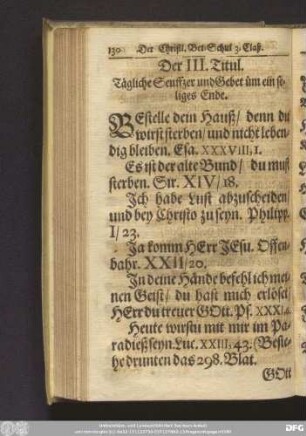 130 Der Christl. Bet-Schul 3. Claß.
Der III. Titul.
Tägliche Seuffzer und Gebet üm ein se-
liges Ende.
BEstelle dein Hauß/ denn du
wirst sterben/ und nicht leben-
dig bleiben. Esa. XXXVIII, 1.
Es ist der alte Bund/ du must
sterben. Sir. XIV/ 18.
Jch habe Lust abzuscheiden
und bey Christo zu seyn. Philipp.
I/ 23.
Ja komm HErr JEsu. Offen-
bahr. XXII/20.
Jn deine Hände befehl ich mei-
nen Geist/ du hast mich erlöset
HErr du treuer GOtt. Ps. XXXI,6.
Heute wirstu mit mir im Pa-
radieß seyn Luc. XXIII, 43. (Besie-
he drunten das 298. Blat.
GOtt
DFG